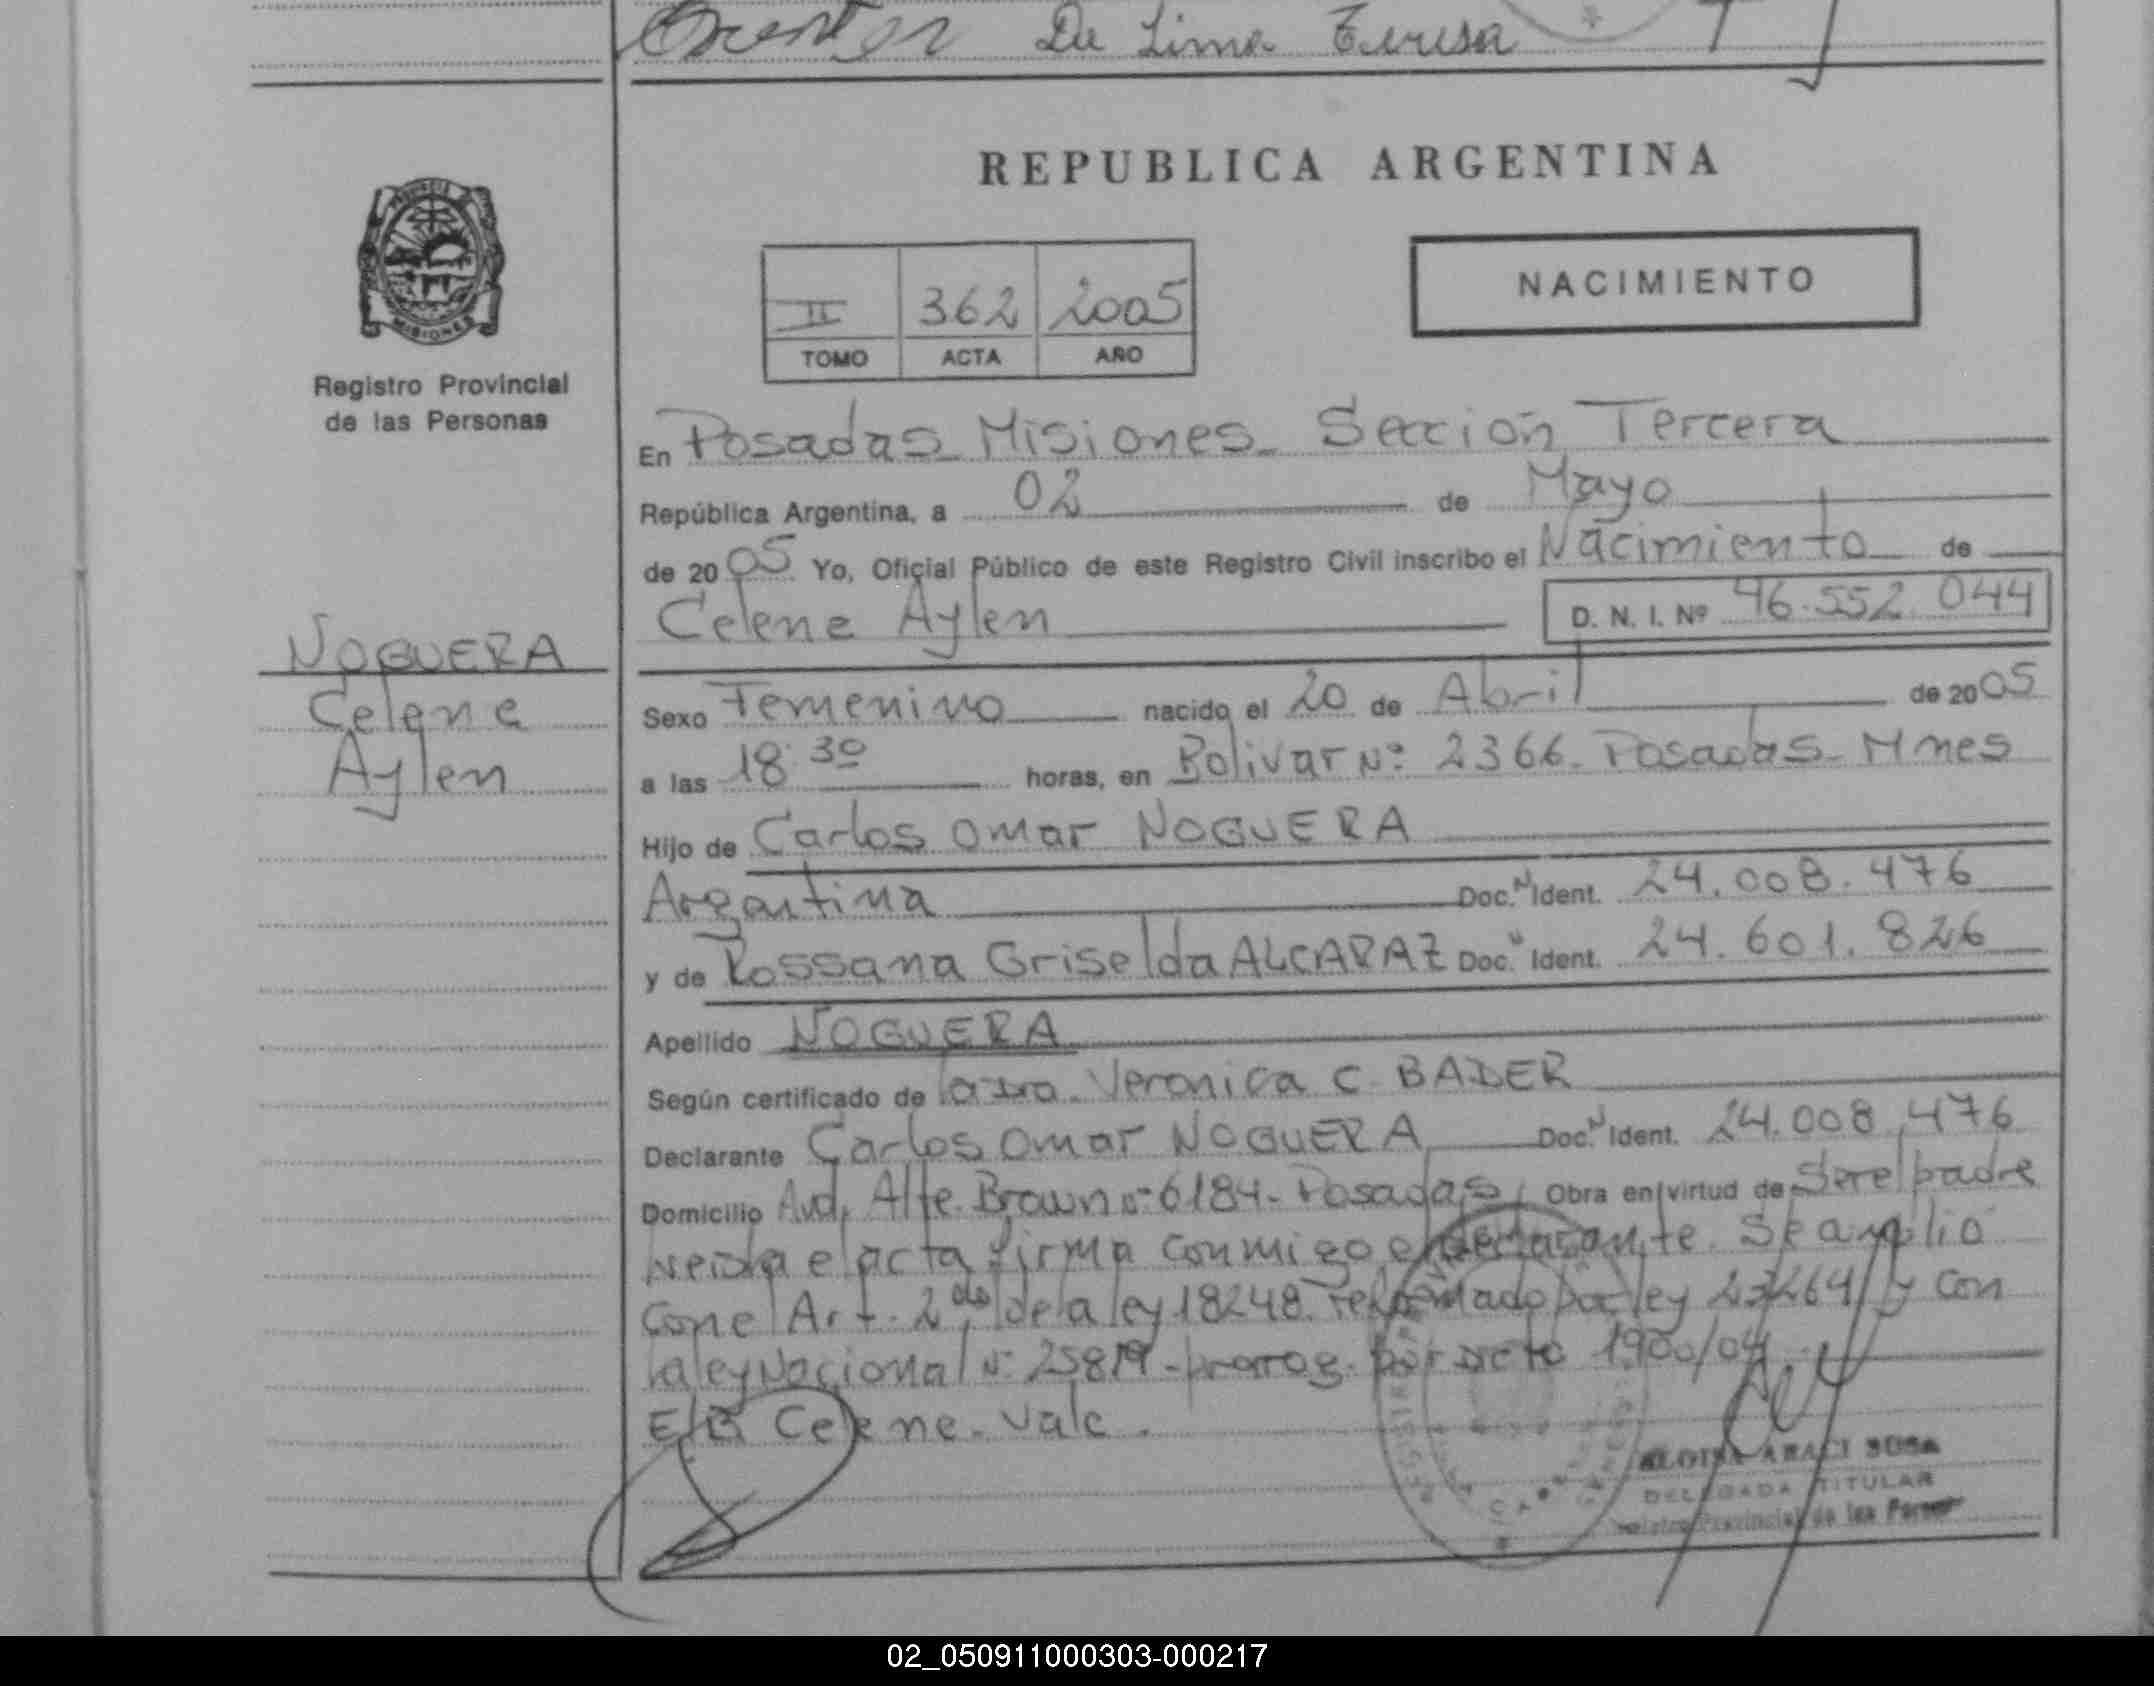 De Lima Teresa
REPUBLICA ARGENTINA
NACIMIENTO
II 362 2005
TOMO ACTA AÑO
MISIONES
Registro Provincial
de las Personas
En Posadas Misiones Sección Tercera
República Argentina, a 02 de Mayo
de 2005 Yo, Oficial Público de este Registro Civil inscribo el Nacimiento de
Celene Aylen D. N. I. Nº 46.552.044
NOGUERA
Celene
Aylen
Sexo Femenino nacido el 20 de Abril de 2005
a las 18:30 horas, en Bolivar Nº 2366 Posadas - Mnes
Hijo de Carlos Omar NOGUERA
Argentina Doc. N Ident. 24.008.476
y de Rossana Griselda ALCARAZ Doc. N Ident. 24.601.826
Apellido NOGUERA
Según certificado de la Dra. Veronica C. BADER
Declarante Carlos Omar NOGUERA Doc. N Ident. 24.008.476
Domicilio Avd. Alte. Brown nº 6184 - Posadas Obra en virtud de Ser el padre
Leida el acta firma conmigo el declarante. Se amplio
con el Art. 2do de la ley 18248. reformado por ley 23264 y con
la ley Nacional Nº 25819 - prorrog. por dcto 1900/04
E/L Celene. Vale.
DELEGADA TITULAR
Registro Provincial de las Personas
02_050911000303-000217